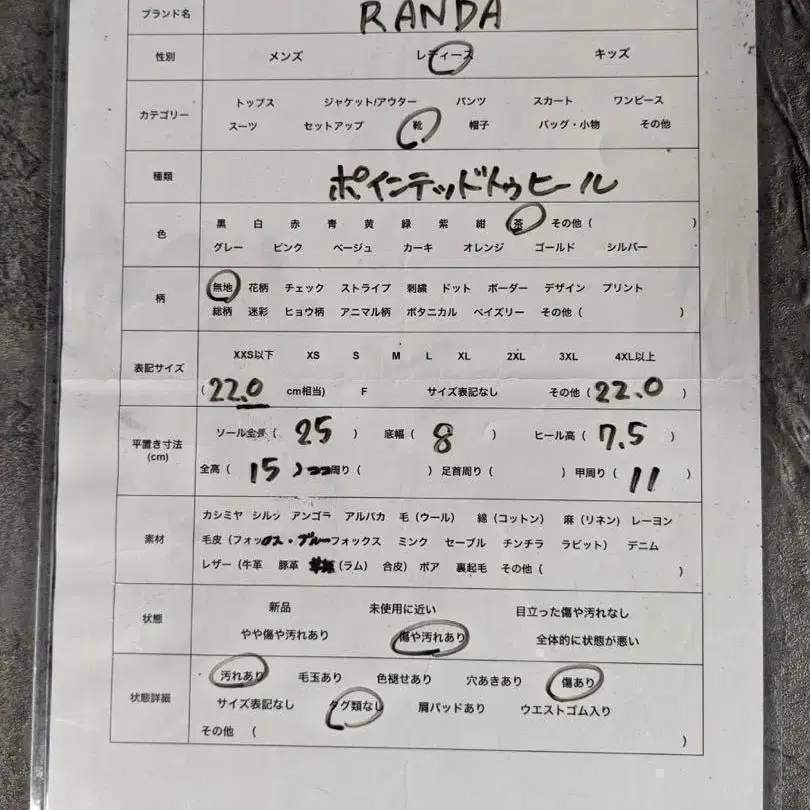 ブランド名 RANDA
性別 メンズ レディース キッズ
カテゴリー トップス ジャケット/アウター パンツ スカート ワンピース
スーツ セットアップ 靴 帽子 バッグ・小物 その他
種類 ポインテッドトゥヒール
色 黒 白 赤 青 黄 緑 紫 紺 茶 その他 ( )
グレー ピンク ベージュ カーキ オレンジ ゴールド シルバー
柄 無地 花柄 チェック ストライプ 刺繍 ドット ボーダー デザイン プリント
総柄 迷彩 ヒョウ柄 アニマル柄 ボタニカル ペイズリー その他 ( )
表記サイズ XXS以下 XS S M L XL 2XL 3XL 4XL以上
( 22.0 cm相当) F サイズ表記なし その他 ( 22.0 )
平置き寸法 (cm) ソール全長 ( 25 ) 底幅 ( 8 ) ヒール高 ( 7.5 )
全高 ( 15 ) 周り ( ) 足首周り ( ) 甲周り ( 11
素材 カシミヤ シルク アンゴラ アルパカ 毛 (ウール) 綿 (コットン) 麻 (リネン) レーヨン
毛皮 (フォックス・ブルーフォックス ミンク セーブル チンチラ ラビット) デニム
レザー (牛革 豚革 (ラム) 合皮) ボア 裏起毛 その他 ( )
状態 新品 未使用に近い 目立った傷や汚れなし
やや傷や汚れあり 傷や汚れあり 全体的に状態が悪い
状態詳細 汚れあり 毛玉あり 色褪せあり 穴あきあり 傷あり
サイズ表記なし タグ類なし 肩パッドあり ウエストゴム入り
その他 ( )